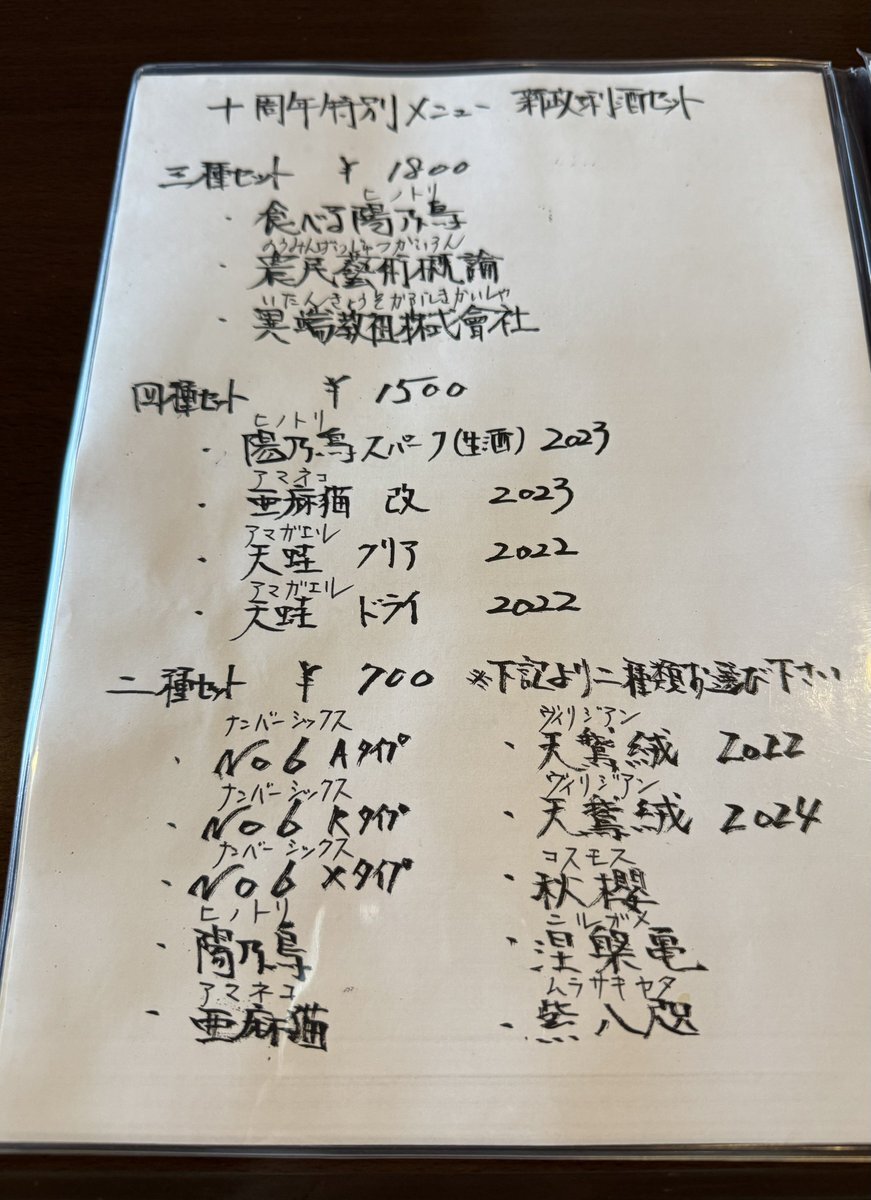 十周年特別メニュー 新政利酒セット
三種セット ¥ 1800
ヒノトリ
・食べる陽乃鳥
のうみんげいじゅつがいろん
・農民藝術概論
いたんきょうそかぶしきかいしゃ
・異端教祖株式會社
四種セット ¥ 1500
ヒノトリ
・陽乃鳥スパーク(生酒) 2023
アマネコ
・亜麻猫 改 2023
アマガエル
・天蛙 クリア 2022
アマガエル
・天蛙 ドライ 2022
二種セット ¥ 700 ※下記より二種類お選び下さい
ナンバーシックス
・No 6 Aタイプ
ナンバーシックス
・No 6 Rタイプ
ナンバーシックス
・No 6 Xタイプ
ヒノトリ
・陽乃鳥
アマネコ
・亜麻猫
ヴィリジアン
・天鵞絨 2022
ヴィリジアン
・天鵞絨 2024
コスモス
・秋櫻
ニルガメ
・涅槃亀
ムラサキヤタ
・紫八咫